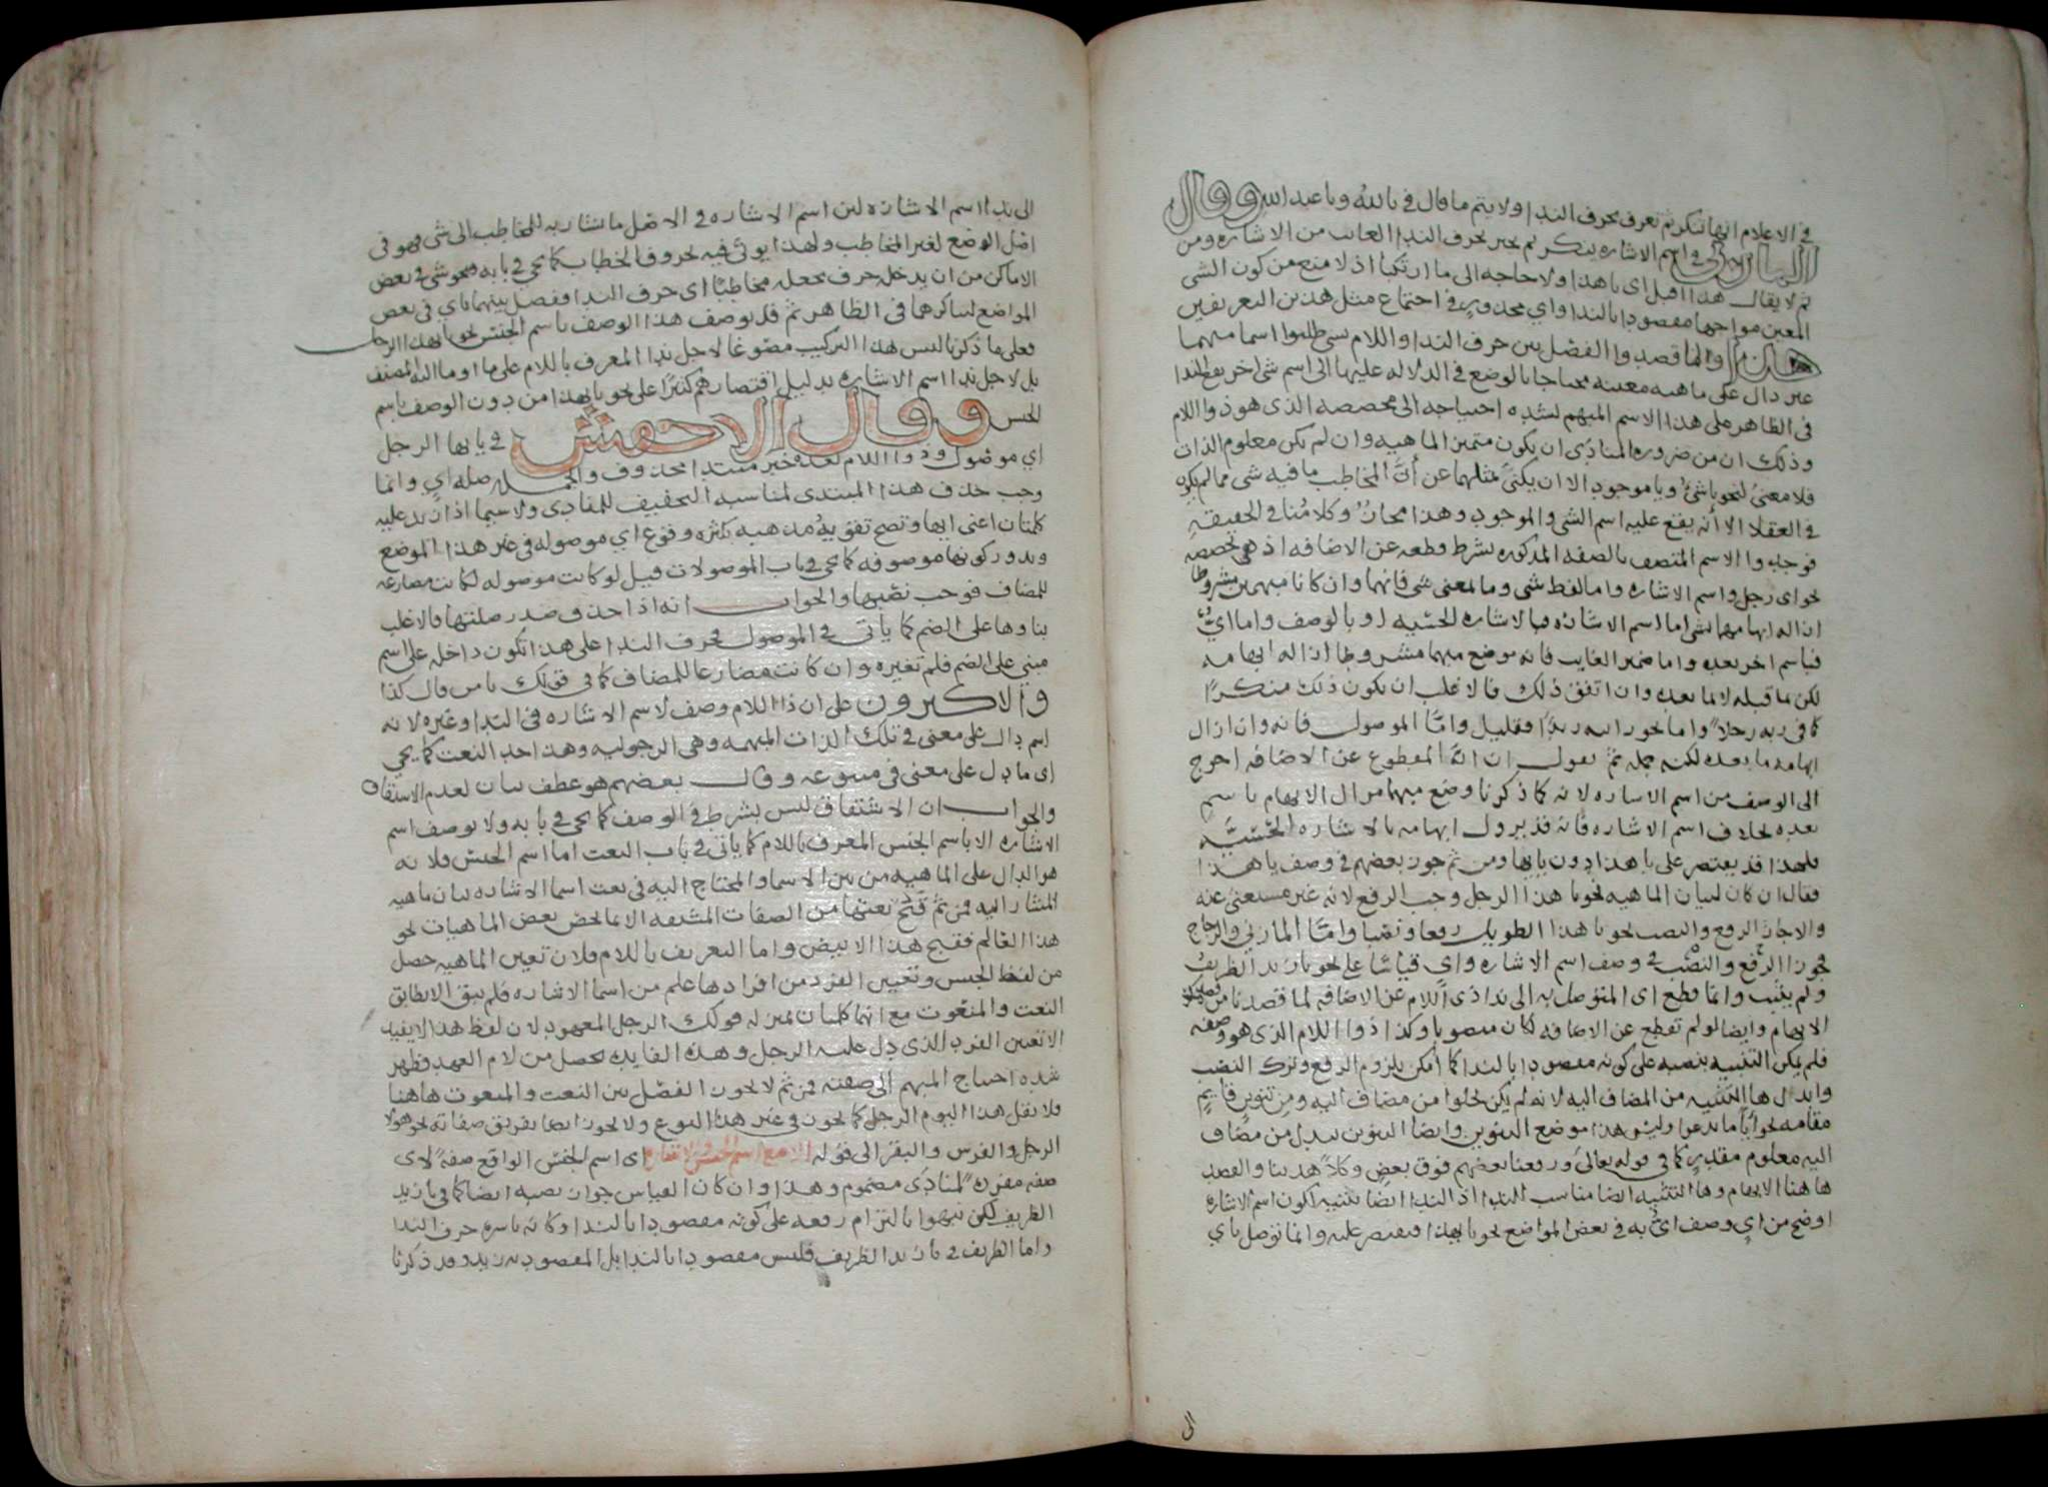 في الاعلام انها تنكر ثم تعرف بحرف الندا ولا يتم ما قال في يا الله ويا عبد الله وقال
المازني في اسم الاشاره ينكر ثم يجبر بحرف الندا الغائب من الاشاره ومن
ثم لا يقال هذا اقبل اى يا هذا ولا حاجه الى ما ارتكبا اذ لا منع من كون الشى
المعين مواجها مقصودا بالندا واي محذور في اجتماع مثل هذين التعريفين
هذا وانما قصدوا الفصل بين حرف الندا واللام بشى طلبوا اسما مبهما
غير دال على ماهيه معينه محتاجا بالوضع في الدلاله عليها الى اسم شى اخر يقع الندا
في الظاهر على هذا الاسم المبهم لشده احتياجه الى مخصصه الذى هو ذو اللام
وذلك ان من ضروره المنادى ان يكون متميز الماهيه وان لم يكن معلوم الذات
فلا معنى لنحو يا شئ ويا موجود الا ان يكنى بمثلهما عن أن المخاطب ما فيه شى مما لم يكن
في العقلا الا أنه يقع عليه اسم الشى والموجود وهذا مجاز وكلامنا في الحقيقه
فوجدوا الاسم المتصف بالصفه المذكوره بشرط قطعه عن الاضافه اذ هى تخصصه
نحو اى رجل واسم الاشاره واما لفظ شى وما بمعنى شى فانهما وان كانا مبهمين مشروطا
ازاله ابهامهما بشى اما اسم الاشاره فبالاشاره الحسيه او بالوصف واما ايّ
فباسم اخر بعده واما ضمير الغايب فانه وضع مبهما مشروطا ازاله ابهامه
لكن بما قبله لا بما بعده وان اتفق ذلك فالاغلب ان يكون ذلك منكرا
كما في ربه رجلا واما نحو اسه زيدا فقليل وامّا الموصول فانه وان ازال
ابهامه ما بعده لكنه جمله ثم نقول ان ايّا المقطوع عن الاضافه احوج
الى الوصف من اسم الاشاره لانه كما ذكرنا وضع مبهما مزال الابهام باسم
بعده بخلاف اسم الاشاره فانه قد يزول ابهامه بالاشاره الحسّيّه
فلهذا قد يقتصر على يا هذا دون يا ايها ومن ثم جوز بعضهم في وصف يا هذا
فقال ان كان لبيان الماهيه نحو يا هذا الرجل وجب الرفع لانه غير مستغنى عنه
والا جاز الرفع والنصب نحو يا هذا الطويل رفعا ونصبا وامّا المازني والزجاج
فجوزا الرفع والنصب في وصف اسم الاشاره واي قياسا على نحو يا زيد الظريف
ولم يثبت وانما قطع اى المتوصل به الى ندا ذى اللام عن الاضافه لما قصدنا من
الابهام وايضا لو لم تقطع عن الاضافه لكان منصوبا وكذا ذو اللام الذى هو وصفه
فلم يكن التنبيه بنصبه على كونه مقصودا بالندا كما أمكن بلزوم الرفع وترك النصب
وابدال ها التنبيه من المضاف اليه لانه لم يكن يخلوا من مضاف اليه ومن تنوين قايم
مقامه نحو أيا ما تدعوا وليس هذا موضع التنوين وايضا التنوين يبدل من مضاف
اليه معلوم مقدر كما في قوله تعالى ورفعنا بعضهم فوق بعض وكلا هدينا والقصد
ها هنا الابهام وها التنبيه ايضا مناسب للندا اذ الندا ايضا تنبيه لكون اسم الاشاره
اوضح من اي وصف ايّ به في بعض المواضع نحو يا ايهذا ويقتصر عليه وانما توصل باي
الى
الى ندا اسم الاشاره لان اسم الاشاره في الاصل ما يشار به للمخاطب الى شى فهو في
اصل الوضع لغير المخاطب ولهذا يوتى فيه بحروف الخطاب كما يجي في بابه فتحوشى في بعض
الاماكن من ان يدخل حرف يجعله مخاطبا اى حرف الندا وفصل بينهما باي في بعض
المواضع لتناكرهما في الظاهر ثم قد يوصف هذا الوصف باسم الجنس نحو يا ايهذا الرجل
فعلى ما ذكرنا ليس هذا التركيب مصوغا لاجل ندا المعرف باللام على ما اوما اليه المصنف
بل لاجل ندا اسم الاشاره بدليل اقتصارهم كثيرا على نحو يا ايهذا من دون الوصف باسم
الجنس وقال الاخفش في يا ايها الرجل
اي موصول وذو اللام بعده خبر مبتدا محذوف والجمله صله اي وانما
وجب حذف هذا المبتدى لمناسبه التخفيف للمنادى ولا سيما اذا زيد عليه
كلمتان اعنى ايها وتصح تقويه مذهبه بكثره وقوع اي موصوله في غير هذا الموضع
وندور كونها موصوفه كما يجى في باب الموصولات قيل لو كانت موصوله لكانت مضارعه
للمضاف فوجب نصبها والجواب انه اذا حذف صدر صلتها فالاغلب
بناوها على الضم كما ياتى في الموصول فحرف الندا على هذا تكون داخله على اسم
مبني على الضم فلم تغيره وان كانت مضارعا للمضاف كما في قولك يا من قال كذا
والاكثرون على ان ذا اللام وصف لاسم الاشاره في الندا وغيره لانه
اسم دال على معنى في تلك الذات المبهمه وهى الرجوليه وهذا حد النعت كما يجي
اى ما دل على معنى في متبوعه وقال بعضهم هو عطف بيان لعدم الاشتقاق
والجواب ان الاشتقاق ليس بشرط في الوصف كما يجى في بابه ولا يوصف اسم
الاشاره الا باسم الجنس المعرف باللام كما ياتى في باب النعت اما اسم الجنس فلانه
هو الدال على الماهيه من بين الاسما والمحتاج اليه في نعت اسما الاشاره بيان ماهيه
المشار اليه فمن ثم قبح نعتها من الصفات المشتقه الا بما لخص بعض الماهيات نحو
هذا العالم فقبح هذا الابيض واما التعريف باللام فلان تعيين الماهيه حصل
من لفظ الجنس وتعيين الفرد من افرادها علم من اسما الاشاره فلم يبق الا تطابق
النعت والمنعوت مع انهما كلمتان بمنزله قولك الرجل المعهود لان لفظ هذا لا يفيد
الا تعيين الفرد الذى دل عليه الرجل وهذه الفايده تحصل من لام العهد فظهر
شده احتياج المبهم الى صفته فمن ثم لا يجوز الفصل بين النعت والمنعوت هاهنا
فلا نقل هذا اليوم الرجل كما يجوز في غير هذا النوع ولا يجوز ايضا تفريق صفاته نحو هولا
الرجل والفرس والبقر الى قوله اى اسم الجنس الواقع صفه لاى
صفه مفرده لمنادى مضموم وهذا وان كان القياس جواز نصبه ايضا كما في يا زيد
الظريف لكن نبهوا بالتزام رفعه على كونه مقصودا بالندا وكانه باسره حرف الندا
واما الظريف في يا زيد الظريف فليس مقصودا بالندا بل المقصود به زيد وقد ذكرنا